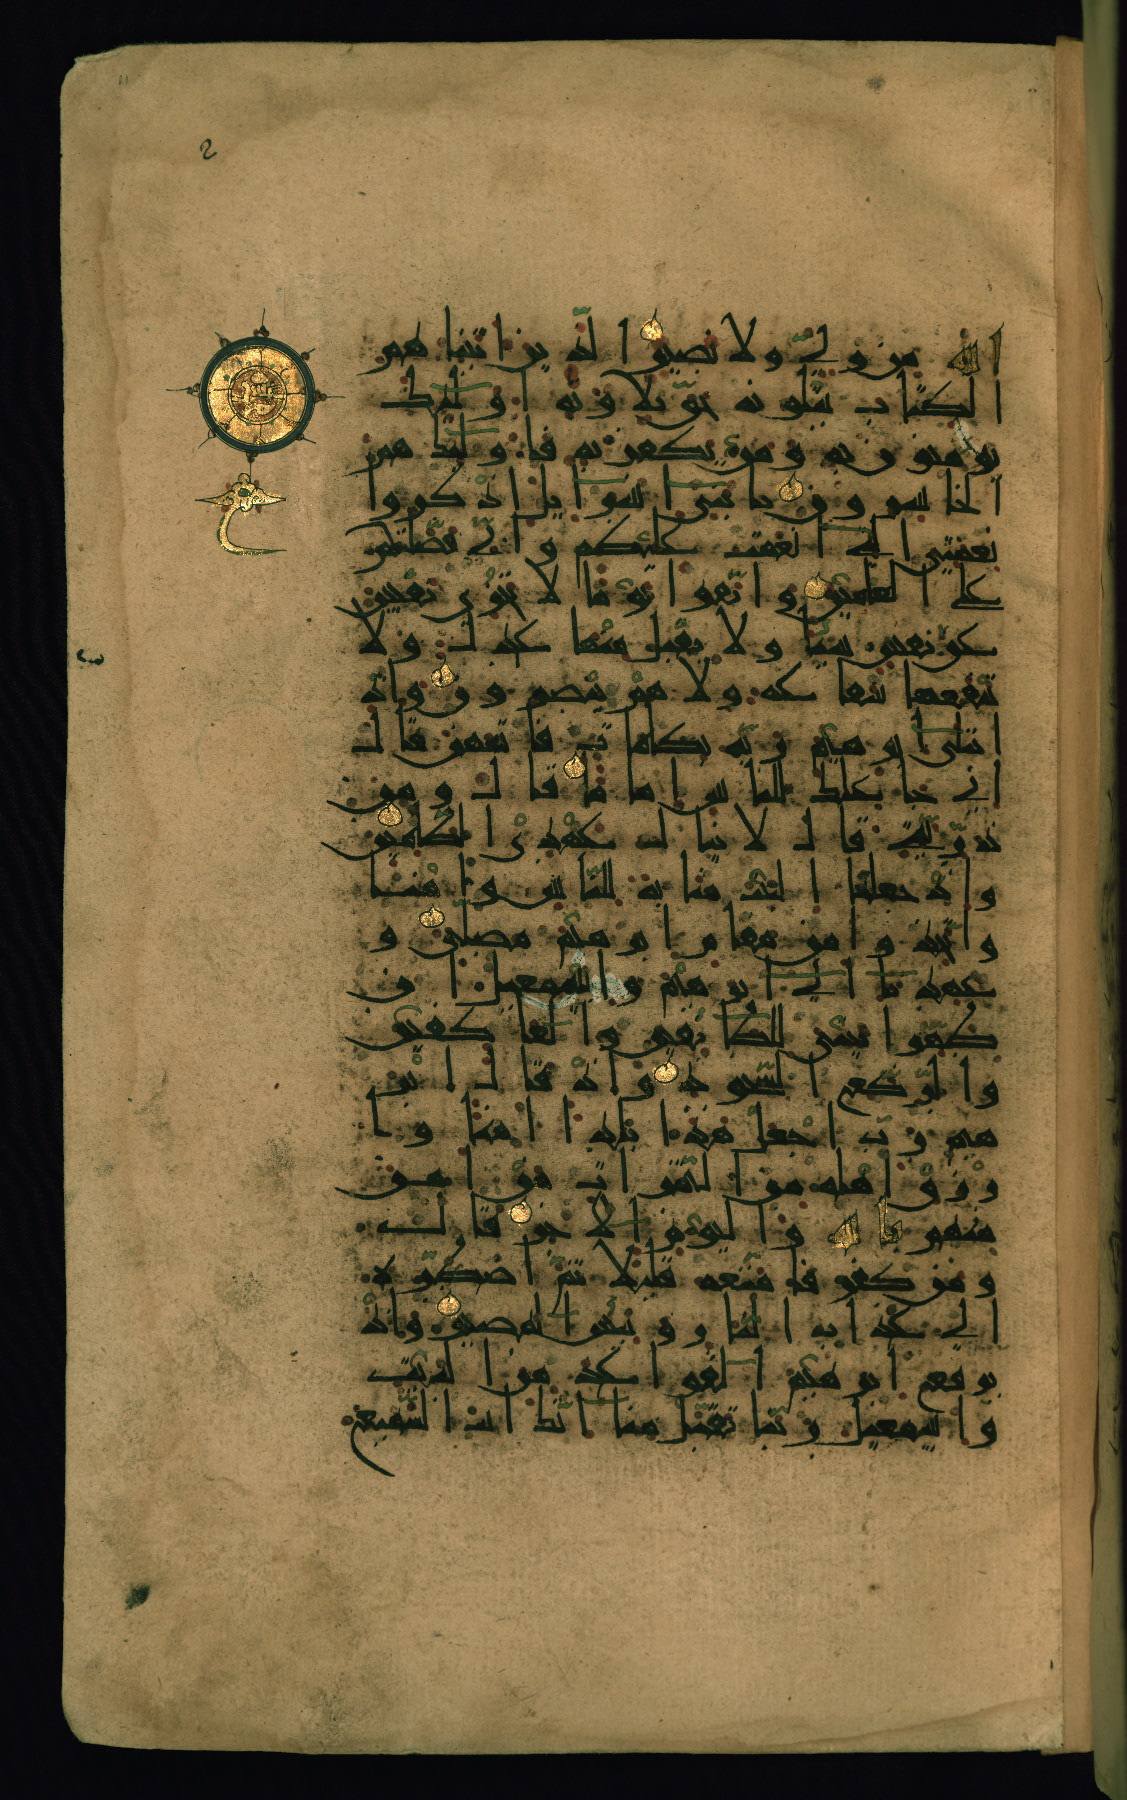 الله من ولي ولا نصير الذين اتيناهم
الكتاب يتلونه حق تلاوته اولئك
يؤمنون به ومن يكفر به فاولئك هم
الخاسرون يا بنى اسرايل اذكروا
نعمتي التي انعمت عليكم واني فضلتكم
على العالمين واتقوا يوما لا تجزي نفس
عن نفس شيئا ولا يقبل منها عدل ولا
تنفعها شفاعة ولا هم ينصرون واذ
ابتلى ابرهيم ربه بكلمات فاتمهن قال
اني جاعلك للناس اماما قال ومن
ذريتي قال لا ينال عهدي الظالمين
واذ جعلنا البيت مثابة للناس وامنا
واتخذوا من مقام ابرهيم مصلى و
عهدنا الى ابرهيم واسمعيل ان
طهرا بيتي للطائفين والعاكفين
والركع السجود واذ قال ابر
هيم رب اجعل هذا بلدا امنا وا
رزق اهله من الثمرات من امن
منهم بالله واليوم الاخر قال
ومن كفر فامتعه قليلا ثم اضطره
الى عذاب النار وبئس المصير واذ
يرفع ابرهيم القواعد من البيت
واسمعيل ربنا تقبل منا انك انت السميع